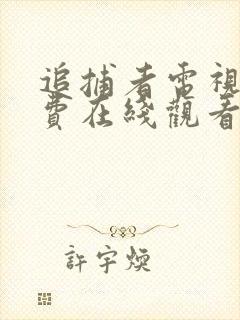 追捕者電視
費在綫觀看
許宇煥